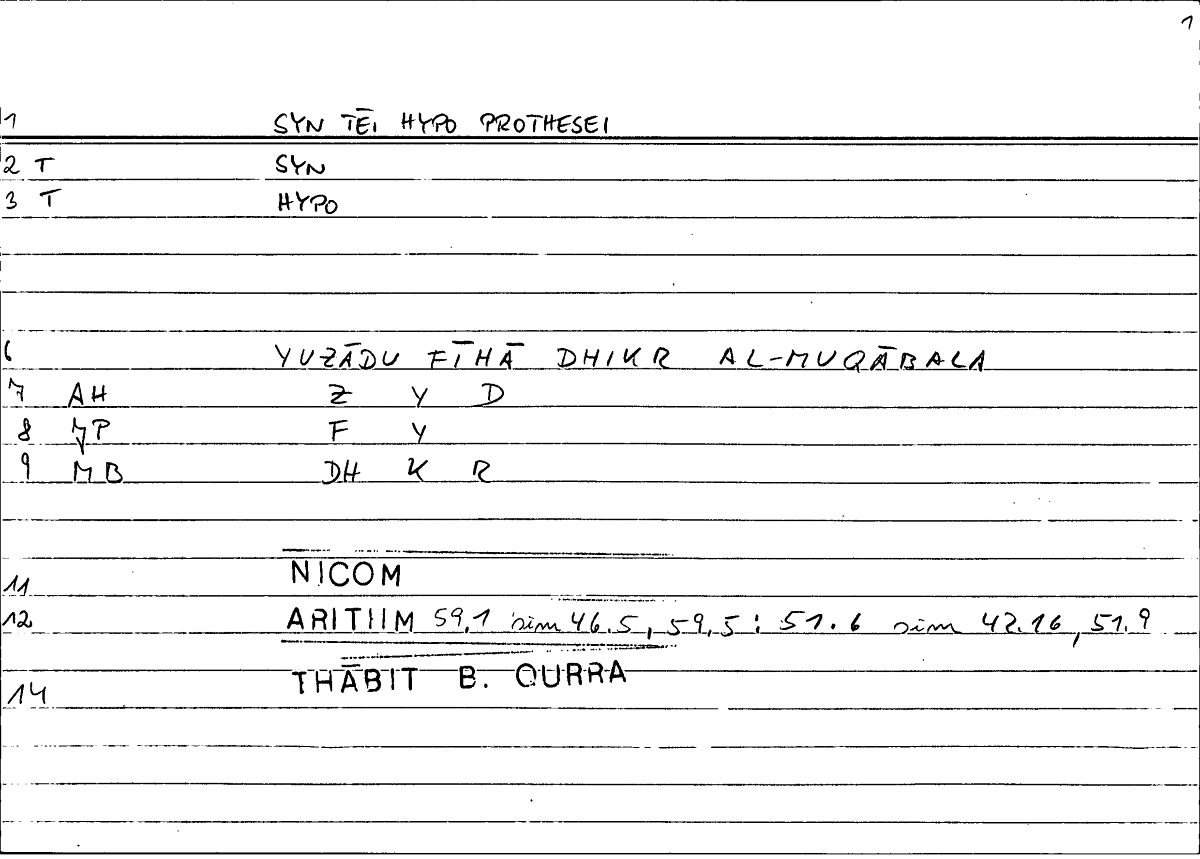 1
1 SYN TĒI HYPO PROTHESEI
2 T SYN
3 T HYPO
6 YUZĀDU FĪHĀ DHIKR AL-MUQĀBALA
7 AH Z Y D
8 JP F Y
9 MB DH K R
11 NICOM
12 ARITIIM 59.1 sim 46.5, 59.5 : 51.6 sim 42.16, 51.9
14 THĀBIT B. QURRA